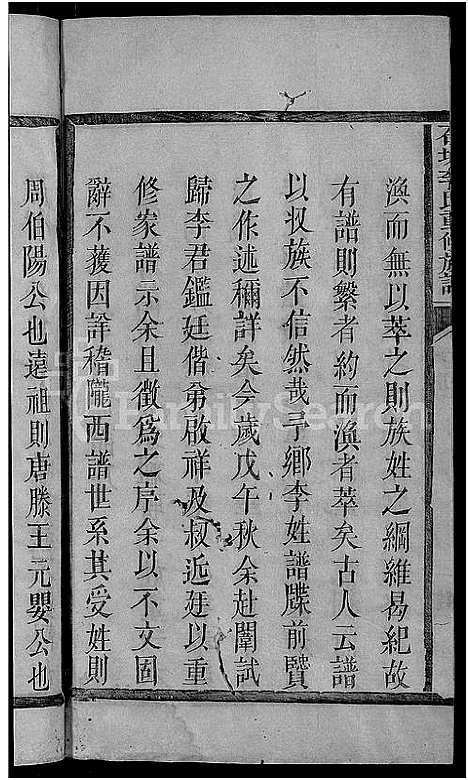 石城李氏重修族譜
渙而無以萃之則族姓之綱維曷紀故
有譜則繫者約而渙者萃矣古人云譜
以収族不信然哉予鄉李姓譜牒前賢
之作述稱詳矣今歲戊午秋余赴闈試
歸李君鑑廷偕弟啟祥及叔近廷以重
修家譜示余且徵為之序余以不文固
辭不獲因詳稽隴西譜世系其受姓則
周伯陽公也遠祖則唐滕王元嬰公也
FamilySearch